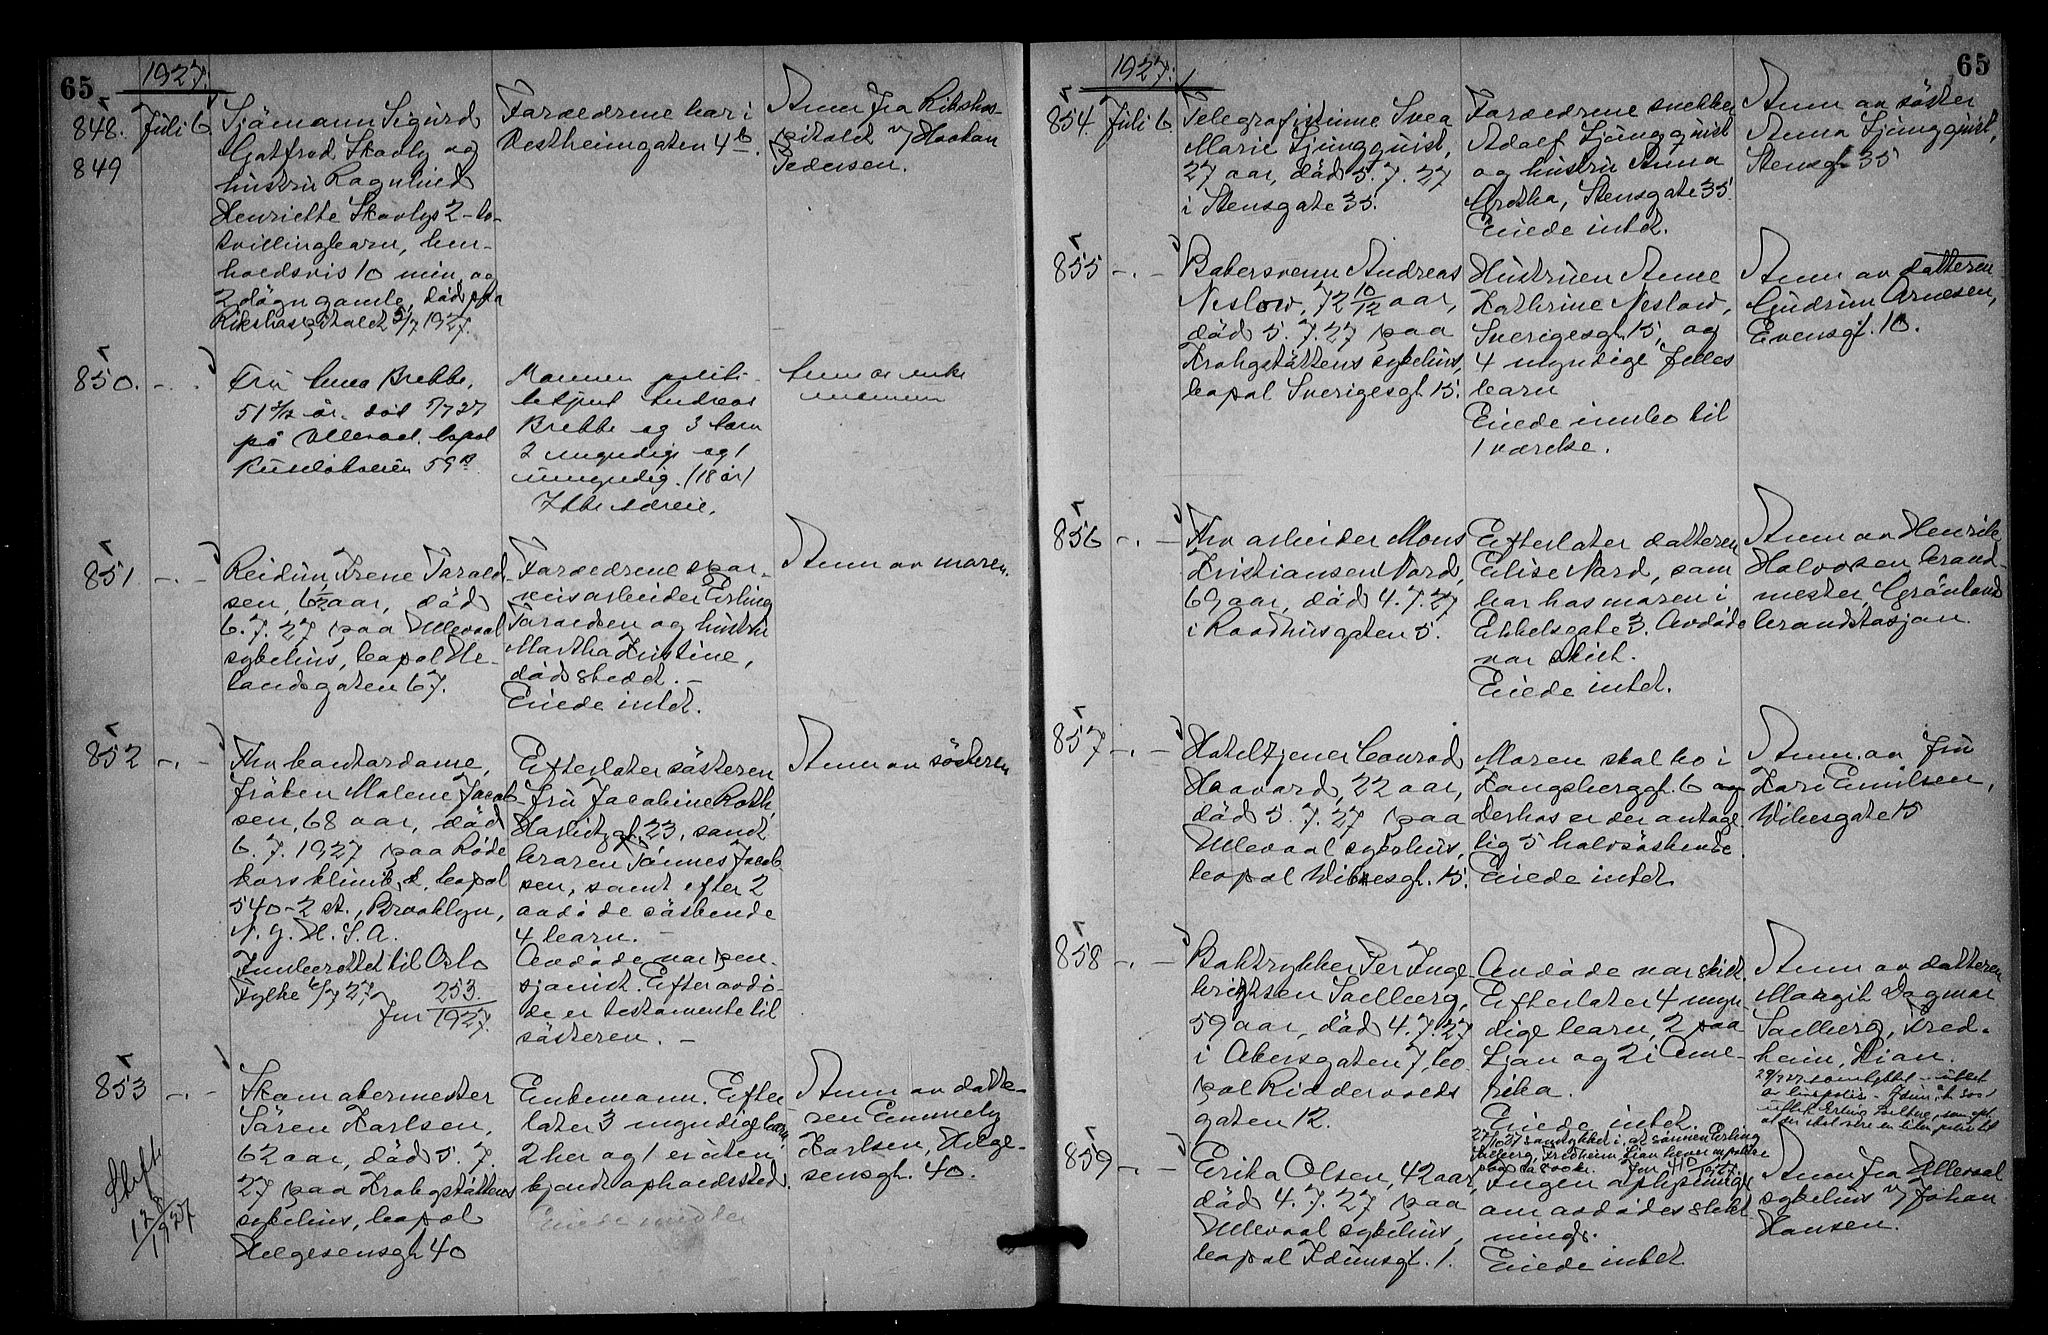 65
1927.
848. Juli 6
849
Sjömann Sigurd
Gotfred Skovly og
hustru Ragnhild
Henriette Skovlys 2 - to -
tvillingbarn, hen-
holdsvis 10 min. og
2 døgn gamle, död paa
Rikshospitalet 5/7 1927.
Forældrene bor i
Vestheimgaten 4 b.
Anm. fra Rikshos-
pitalet v/ Haakon
Pedersen.
850. - . -
Fru Anna Brekke,
51 år. död 5/7 27
på Ullevaal, bopæl
59 a.
Mannen politi-
betjent Andreas
Brekke og 3 barn
2 myndige og 1
umyndig. (18 år)
Ikke særeie.
Anm av enke
mannen
851 - . -
Reidun Irene Tarald-
sen, 6 1/2 aar, död
6. 7. 27 paa Ullevaal
sykehus, bopæl He-
landsgaten 67.
Forældrene spor-
veisarbeider Erling
Taraldsen og hustru
Martha Kristine,
dödstedet. -
Eiede intet.
Anm av moren.
852 - . -
Fhv kontordame,
fröken Malene Jacob-
sen, 68 aar, död
6. 7. 1927 paa Røde
kors klinik, d. bopæl
540 - 2 st., Brooklyn,
N. Y. U. S. A.
Innberettet til Oslo
Fylke 6/7 27
Jnr 253/1927
Efterlater sösteren
fru Jacobine Roth,
Harbitzgt. 23, samt
broren Tönnes Jacob-
sen, samt efter 2
avdöde söskende
4 barn. -
Avdöde var pen-
sjonist. Efter avdö-
de er testamente til
søsteren. -
Anm av søsteren
853 - . -
Skomakermester
Sören Karlsen,
62 aar, död 5. 7.
27 paa Krohgstøttens
sykehus, bopæl
Helgesensgt 40
Enkemann. Efter-
later 3 myndige barn,
2 her og 1 er uten
kjendt opholdssted.
Eiede midler
Anm av datte-
ren Emmely
Karlsen, Helge-
sensgt. 40.
Skifte
1927
65
1927.
854. Juli 6.
Telegrafistinne Svea
Marie Ljungquist,
27 aar, död 5. 7. 27
i Stensgate 35.
Forældrene snekker
Adolf Ljungquist
og hustru Anna
Grotha, Stensgate 35.
Eiede intet.
Anm av söster
Anna Ljungquist,
Stensgt 35
855 - . -
Bakersvenn Andreas
Neslow, 72 10/12 aar,
död 5. 7. 27 paa
Krohgstøttens sykehus,
bopæl Sverigesgt 15.
Hustruen Anne
Kathrine Neslow,
Sverigesgt. 15, og
4 myndige felles
barn
Eiede innbo til
1 værelse.
Anm av datteren
Gudrun Arnesen,
Evensgt. 10.
856 - . -
Fhv arbeider Mons
Kristiansen Nord,
69 aar, död 4. 7. 27
i Raadhusgaten 5.
Efterlater datteren
Elise Nord, som
bor hos moren i
Eckelsgate 3. Avdöde
var skilt.
Eiede intet.
Anm av Henrik
Halvorsen, brand-
mester Grönland
brandstasjon.
857 - . -
Hotelltjener Conrad
Haavard, 22 aar,
död 5. 7. 27 paa
Ullevaal sykehus,
bopæl Wibesgt. 15.
Moren skal bo i
Kongsberggt. 6 og
derhos er der antage-
lig 5 halvsöskende.
Eiede intet
Anm. av fru
Kari Emilsen,
Wibesgate 15
858 - . -
Boktrykker Per Inge-
brigtsen Saelberg,
59 aar, död 4. 7. 27
i Akersgaten 7, bo-
pæl Riddervolds
gaten 12.
Avdöde var skilt
Efterlater 4 myn-
dige barn, 2 paa
Ljan og 2 i Ame-
rika.
Eiede intet.
27/10 27 samtykket i at sønnen Erling
Saelberg, Fredheim, Ljan hever en polise
Anm av datteren
Margit Dagmar
Saelberg, Fred-
heim, Ljan.
859 - . -
Erika Olsen, 42 aar,
död 4. 7. 27 paa
Ullevaal sykehus,
bopæl Idunsgt. 1.
Ingen oplysninger
om avdødes slekt-
ninger.
Eiede intet
Anm fra Ullevaal
sykehus v/ Johan
Hansen.